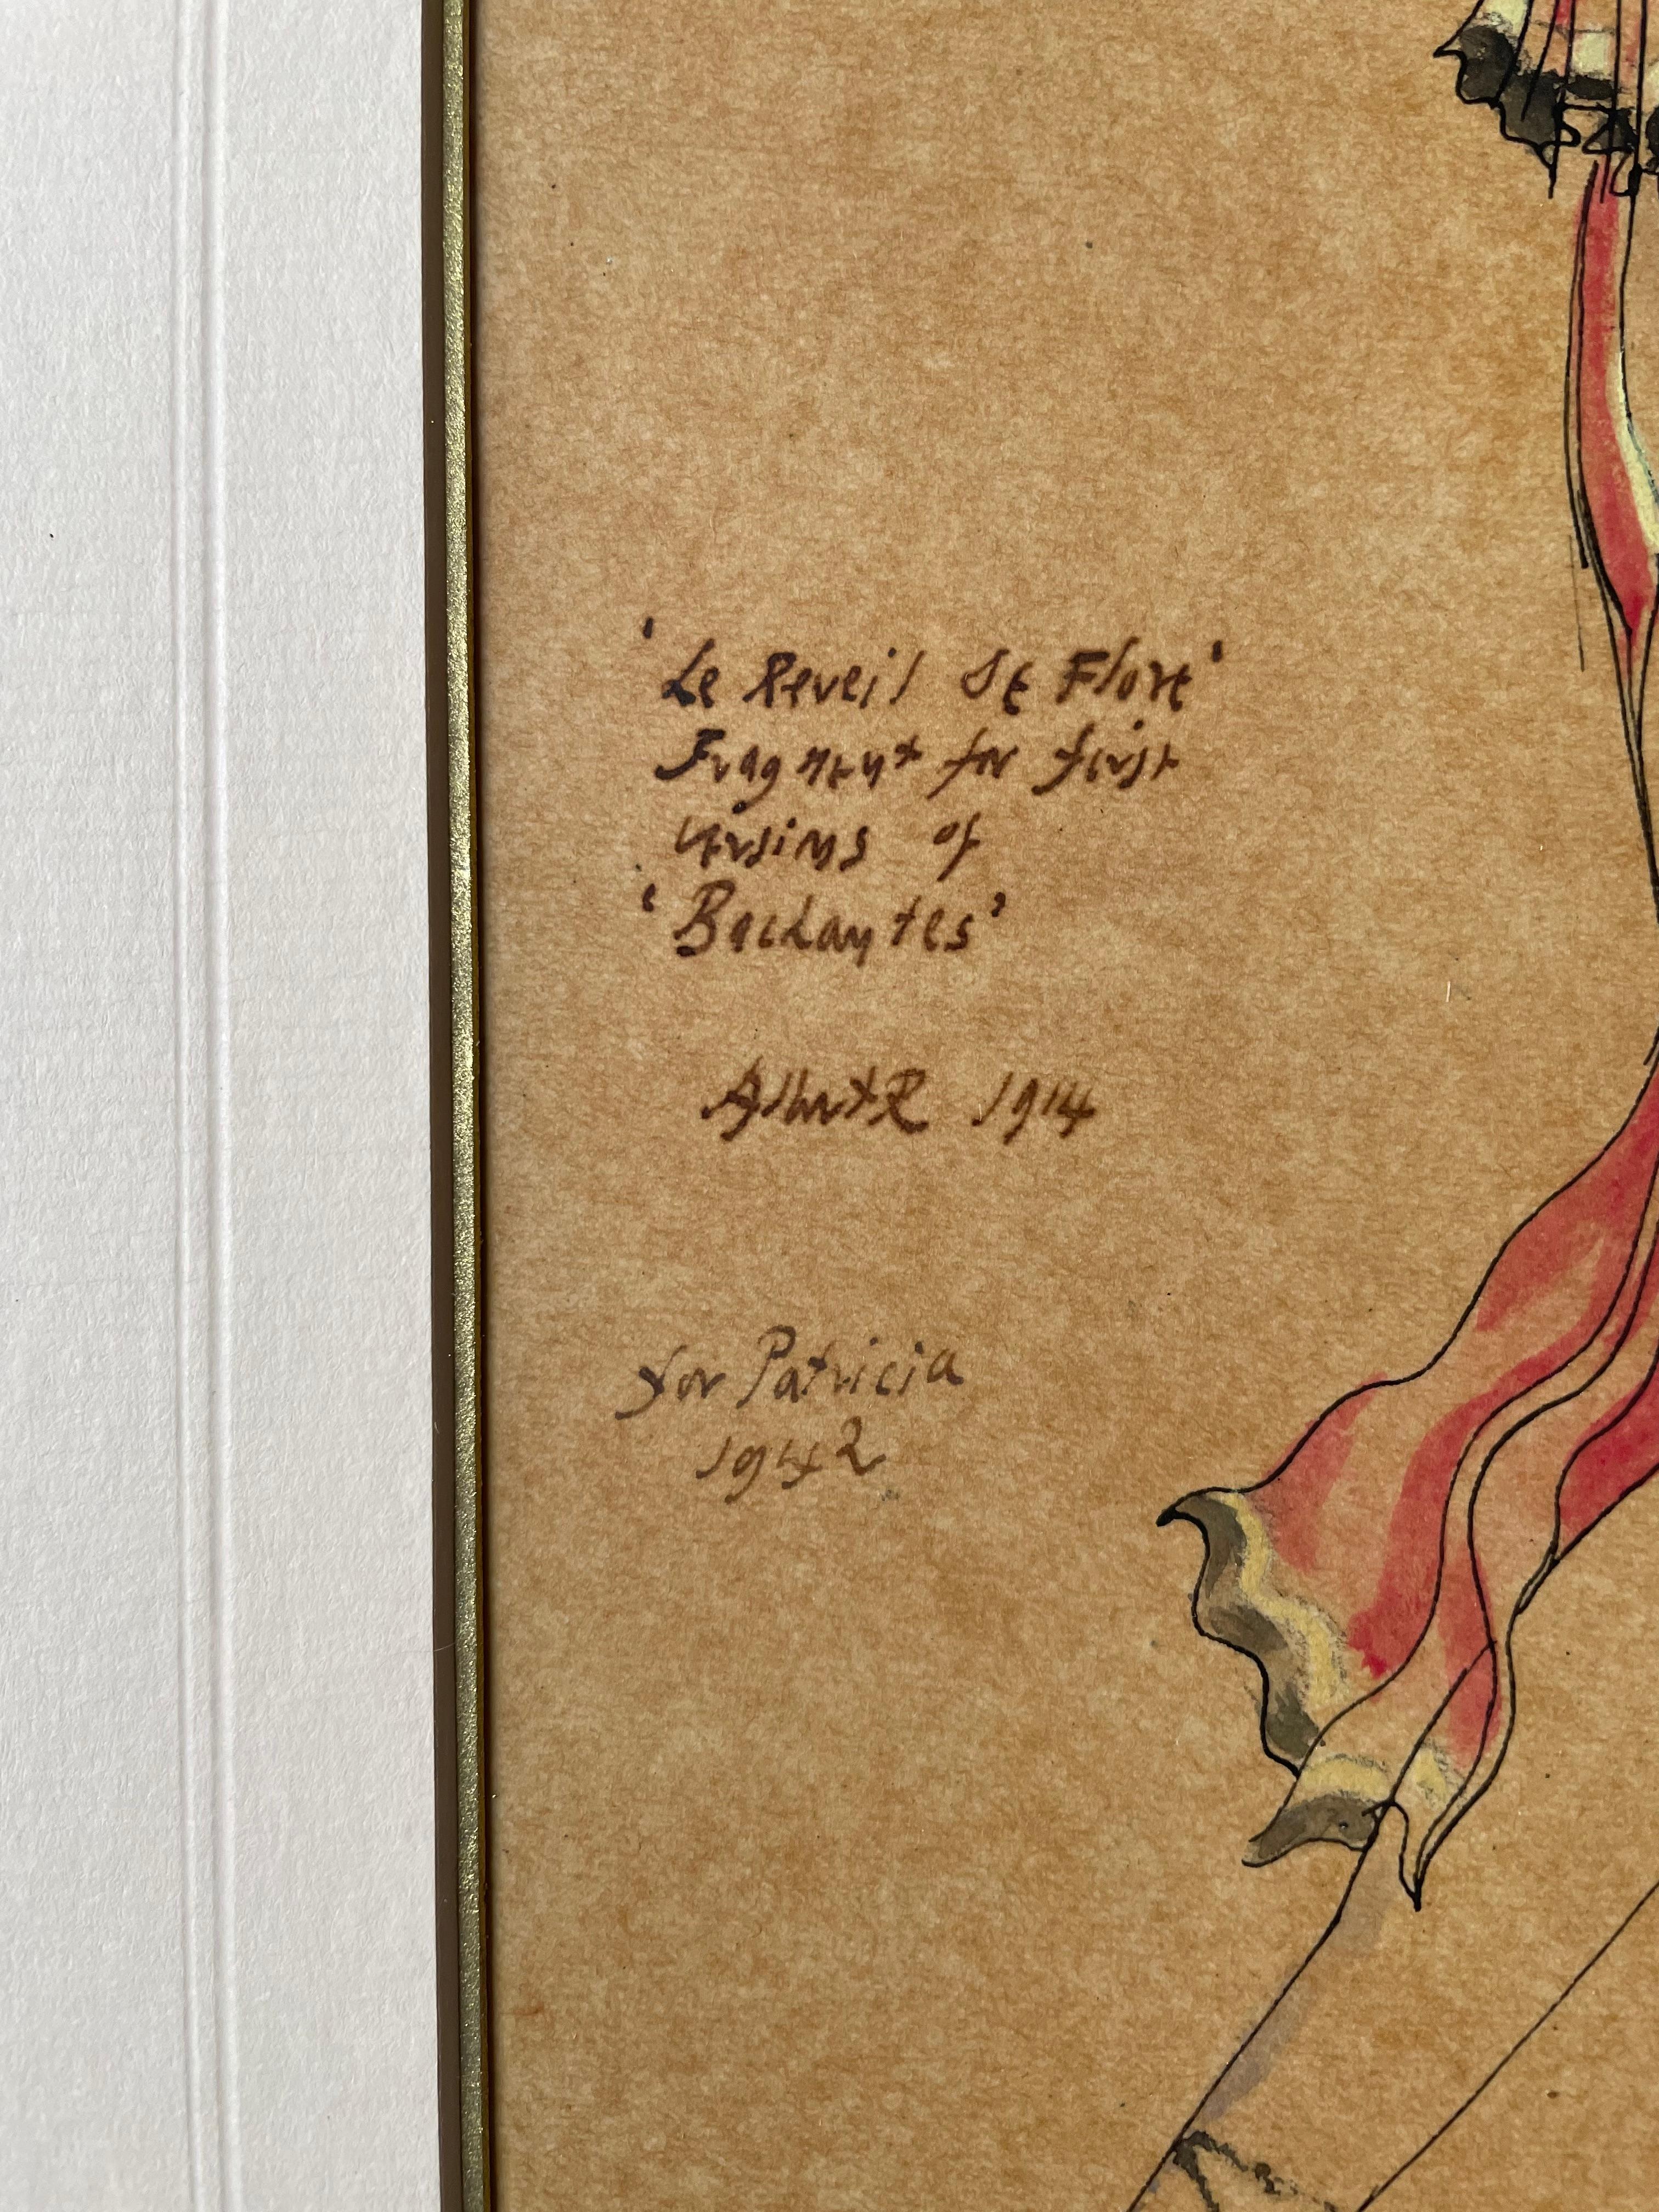 'Le Reveil de Flore'
Fragment for first
versions of
'Bachantes'
Albert R 1914
for Patricia
1942